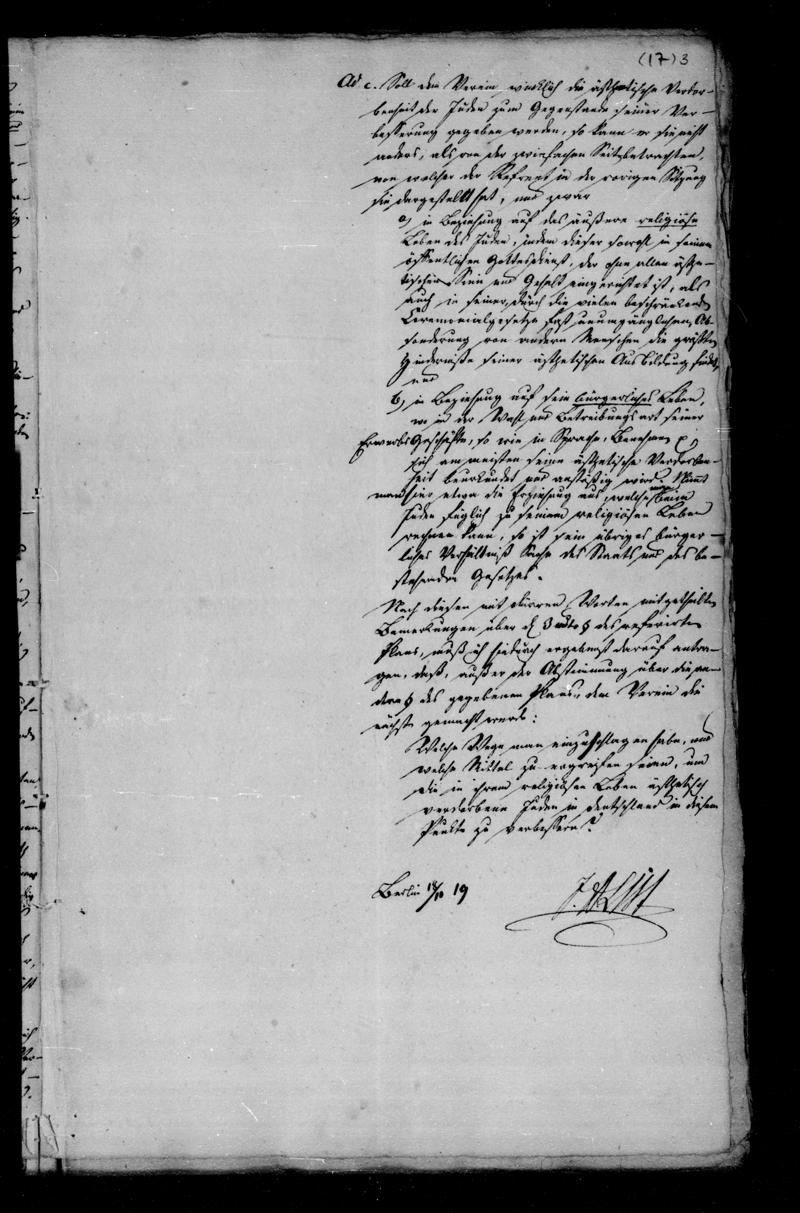 (17) 3
Ad c. Soll dem Verein wirklich die ästhetische Verdor-
benheit der Juden zum Gegenstande seiner Ver-
besserung gegeben werden, so kann er sie nicht
anders, als von der zwiefachen Seite betrachten,
von welcher der Referent in der vorigen Sitzung
sie dargestellt hat, und zwar
a) in Beziehung auf das äußere religiöse
Leben des Juden, indem dieser sowohl in seinem
öffentlichen Gottesdienst, der ohne allen ästhe-
tischen Sinn und Gehalt eingerichtet ist, als
auch in seiner, durch die vielen beschränkenden
Ceremonialgesetze fast unumgänglichen, Ab-
sonderung von andern Menschen die größten
Hindernisse seiner ästhetischen Ausbildung findet,
und
b) in Beziehung auf sein bürgerliches Leben,
wo in der Wahl und Betreibungsart seiner
Erwerbs Geschäfte, so wie in Sprache, Benehmen p,
sich am meisten seine ästhetische Verdorben-
heit beurkundet und anstößig wird. Nimmt
man hier etwa die Erziehung aus, welche man beim
Juden füglich zu seinem religiösen Leben
rechnen kann, so ist sein übriges bürger-
liches Verhältniß Sache des Staats und des be-
stehenden Gesetzes.
Nach diesen mit dürren Worten mitgetheilten
Bemerkungen über d. des referirten
Plans, muß ich hiedurch ergebenst darauf antra-
gen, daß, außer der Abstimmung über die an-
dern § des gegebenen Plans, dem Verein die
nächste gemacht werde:
Welche Wege man einzuschlagen habe, und
welche Mittel zu ergreifen seien, um
die in ihrem religiösen Leben ästhetisch
verdorbene Juden in Deutschland in diesem
Punkte zu verbessern?
Berlin 19
J. A. List